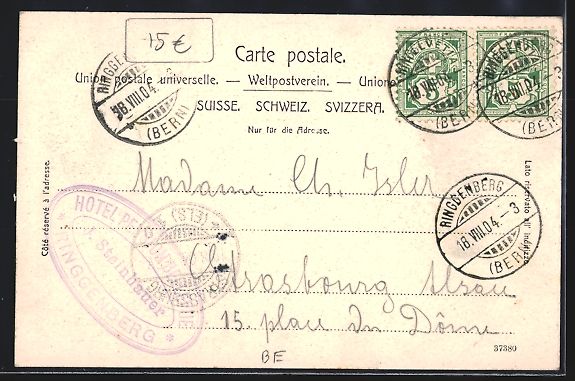 15 €
Carte postale.
Union postale universelle. — Weltpostverein. — Unione
SUISSE. SCHWEIZ. SVIZZERA.
Nur für die Adresse.
HELVETIA
5
RINGGENBERG
18.VIII.04.-3
(BERN)
RINGGENBERG
18.VIII.04
(BERN)
RINGGENBERG
18.VIII.04.-3
(BERN)
RINGGENBERG
18.VIII.04.-3
(BERN)
Côté réservé à l'adresse.
Lato riservato all'indirizzo
Madame Ch. Isler
Strasbourg Alsace
15. place du Dôme
HOTEL
Steinhauer
* RINGGENBERG *
STRASSBURG
(ELS.)
BE
37380